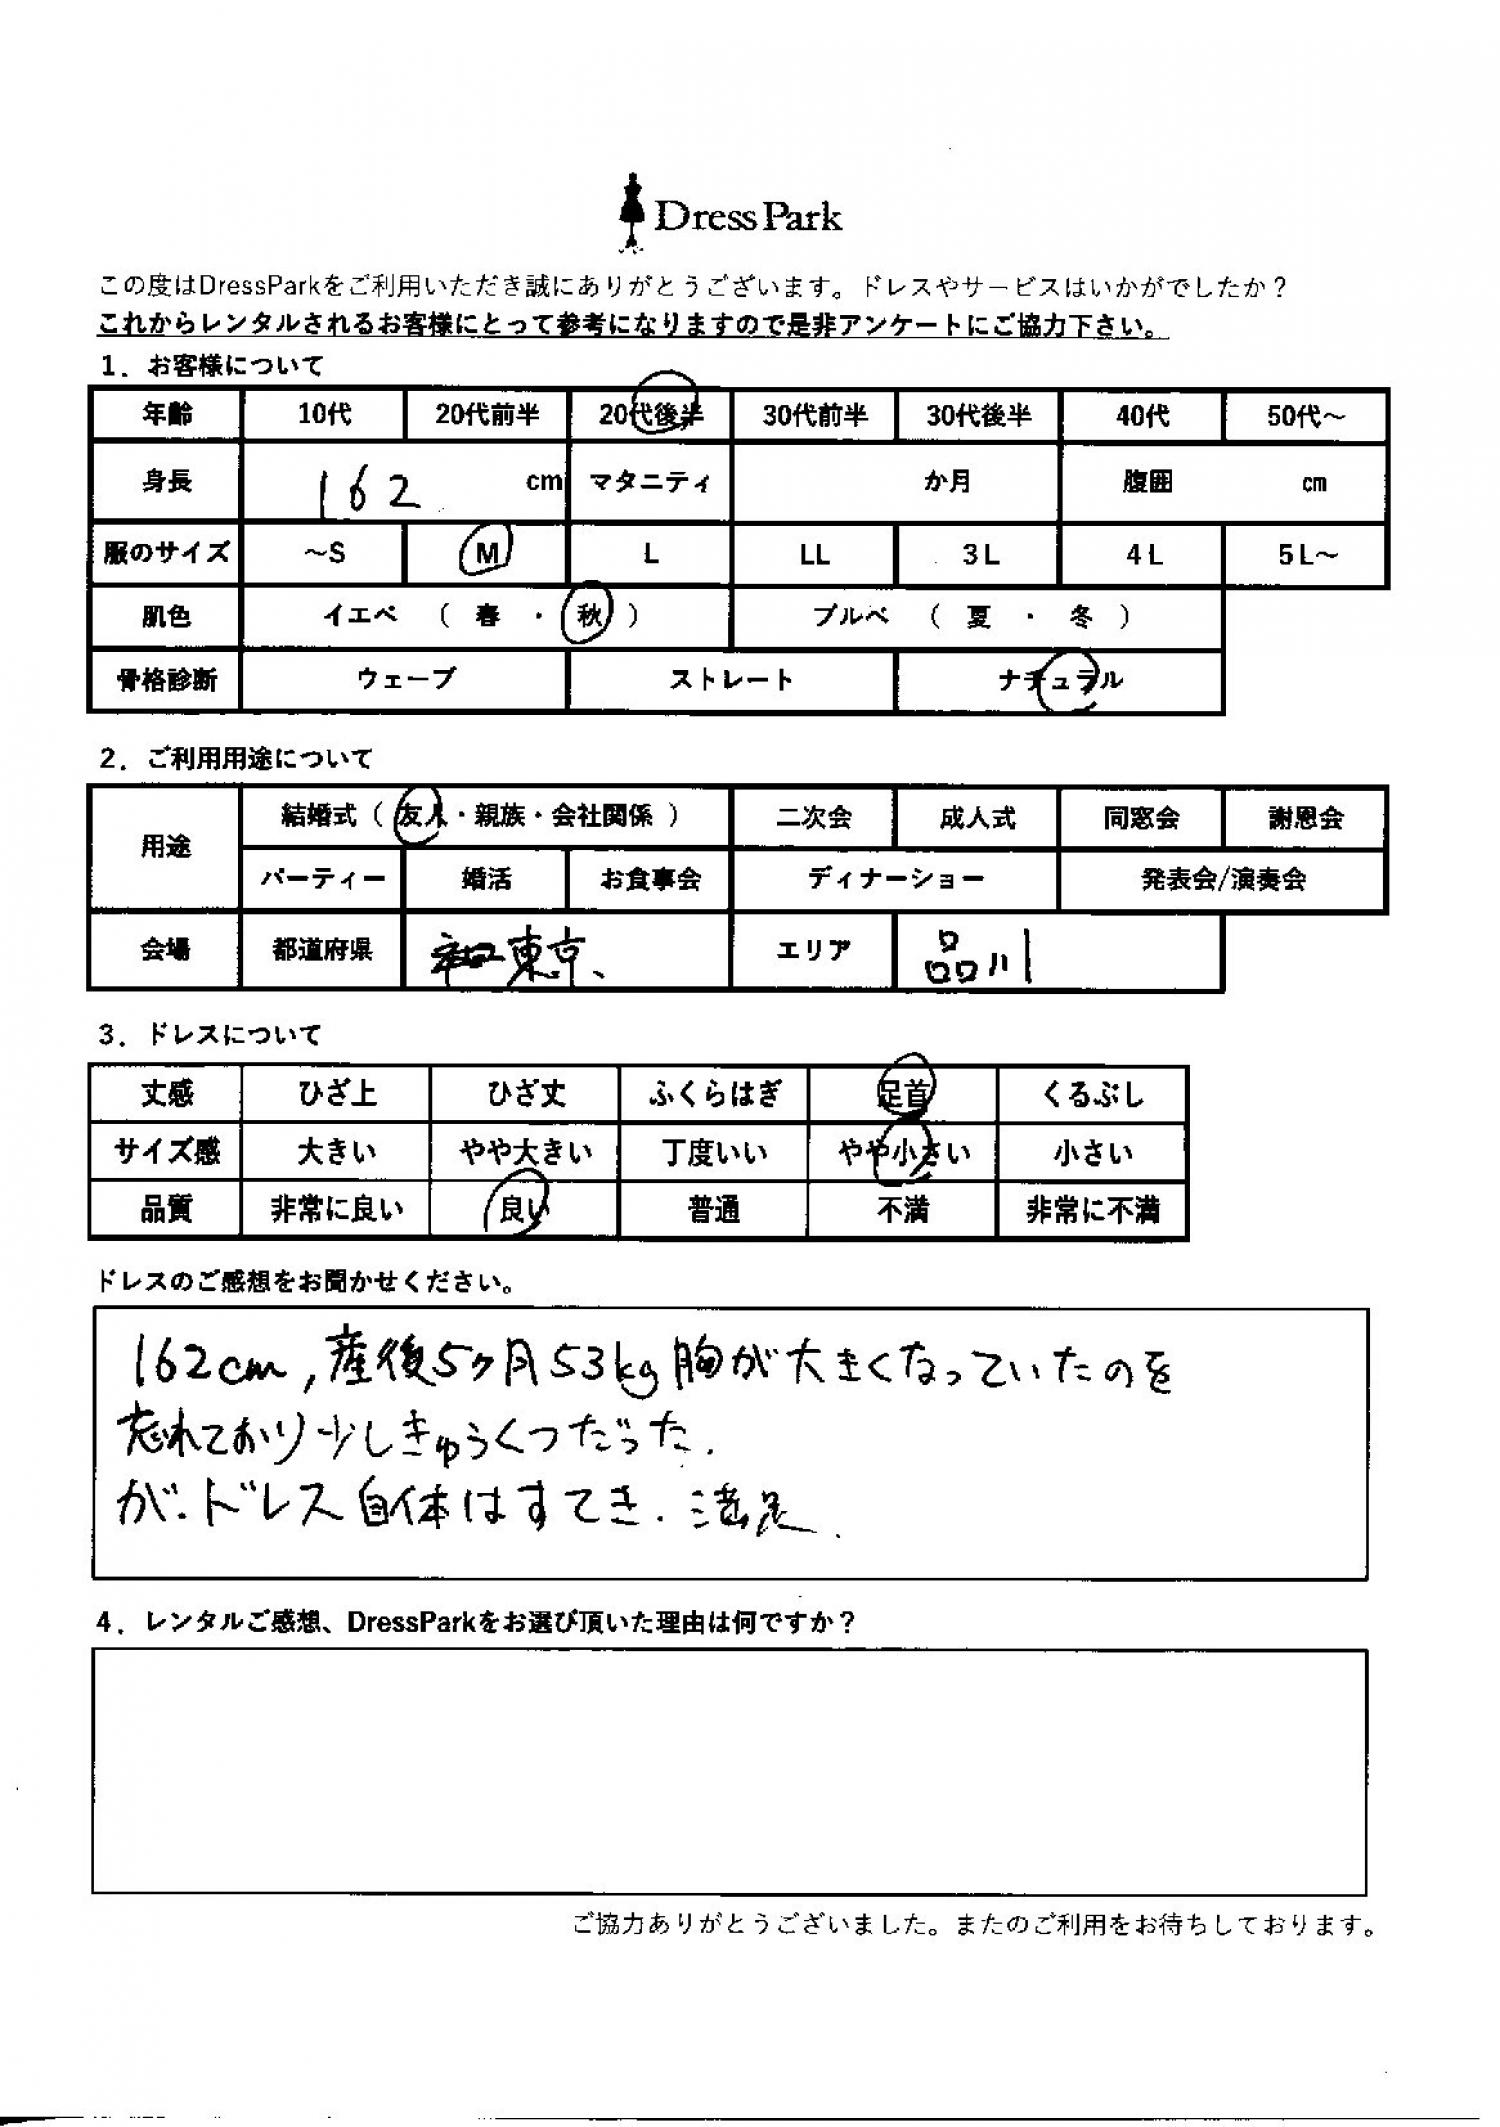 Dress Park
この度はDressParkをご利用いただき誠にありがとうございます。ドレスやサービスはいかがでしたか？
これからレンタルされるお客様にとって参考になりますので是非アンケートにご協力下さい。
1．お客様について
年齢 10代 20代前半 20代後半 30代前半 30代後半 40代 50代～
身長 162 cm マタニティ か月 腹囲 cm
服のサイズ ～S M L LL 3L 4L 5L～
肌色 イエベ （ 春 ・ 秋 ） ブルベ （ 夏 ・ 冬 ）
骨格診断 ウェーブ ストレート ナチュラル
2．ご利用用途について
用途 結婚式（ 友人・親族・会社関係 ） 二次会 成人式 同窓会 謝恩会
パーティー 婚活 お食事会 ディナーショー 発表会/演奏会
会場 都道府県 東京、 エリア 品川
3．ドレスについて
丈感 ひざ上 ひざ丈 ふくらはぎ 足首 くるぶし
サイズ感 大きい やや大きい 丁度いい やや小さい 小さい
品質 非常に良い 良い 普通 不満 非常に不満
ドレスのご感想をお聞かせください。
162cm,産後5ヶ月53kg胸が大きくなっていたのを
忘れており少しきゅうくつだった.
が.ドレス自体はすてき.満足.
4．レンタルご感想、DressParkをお選び頂いた理由は何ですか？
ご協力ありがとうございました。またのご利用をお待ちしております。